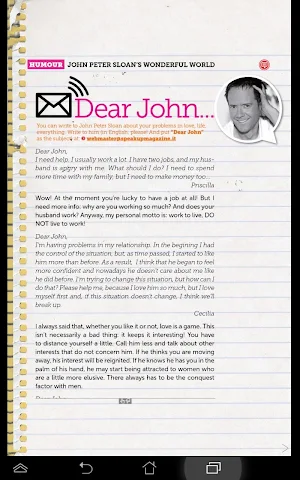 HUMOUR JOHN PETER SLOAN'S WONDERFUL WORLD
Dear John...
You can write to John Peter Sloan about your problems in love, life,
everything. Write to him (in English, please) And put "Dear John"
as the subject at webmaster@speakupmagazine.it
Dear John,
I need help. I usually work a lot. I have two jobs, and my hus-
band is angry with me. What should I do? I need to spend
more time with my family, but I need to make money too...
Priscilla
Wow! At the moment you're lucky to have a job at all! But I
need more info: why are you working so much? And does your
husband work? Anyway, my personal motto is: work to live, DO
NOT live to work!
Dear John,
I'm having problems in my relationship. In the begining I had
the control of the situation, but, as time passed, I started to like
him more than before. As a result, I think that he began to feel
more confident and nowadays he doesn't care about me like
he did before. I'm trying to change this situation, but how can I
do that? Please help me, because I love him so much, but I love
myself first and, if this situation doesn't change, I think we'll
break up.
Cecilia
I always said that, whether you like it or not, love is a game. This
isn't necessarily a bad thing: it keeps it interesting! You have
to distance yourself a little. Call him less and talk about other
interests that do not concern him. If he thinks you are moving
away, his interest will be reignited. If he knows he has you in the
palm of his hand, he may start being attracted to women who
are a little more elusive. There always has to be the conquest
factor with men.